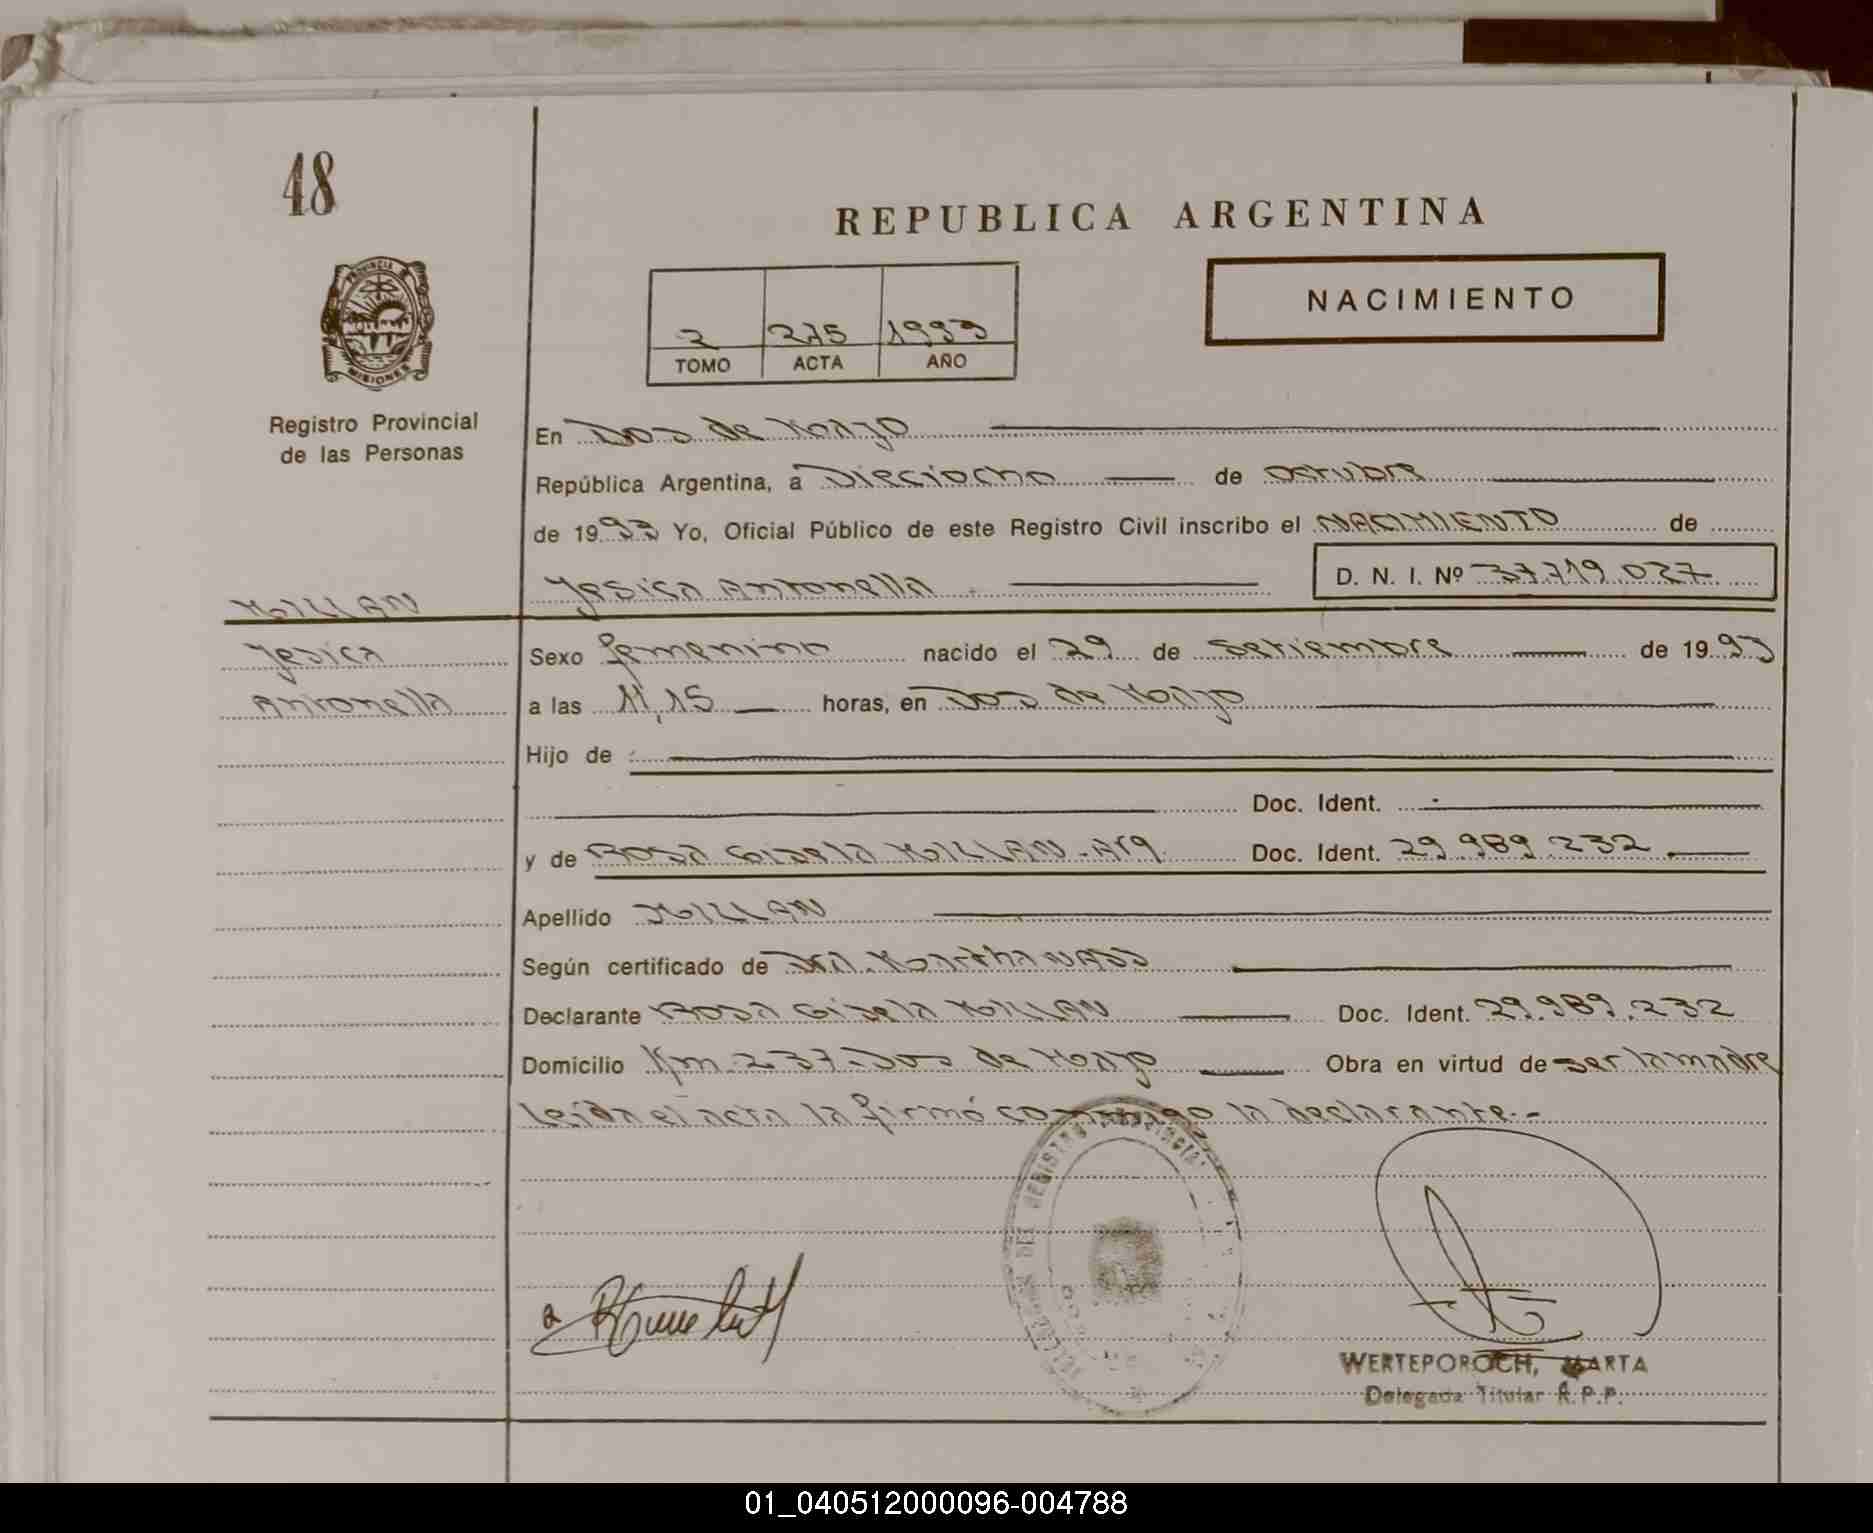 48
REPUBLICA ARGENTINA
NACIMIENTO
2 275 1993
TOMO ACTA AÑO
PROVINCIA DE MISIONES
Registro Provincial
de las Personas
En Dos de Mayo
República Argentina, a Dieciocho de octubre
de 1993 Yo, Oficial Público de este Registro Civil inscribo el NACIMIENTO de
Yesica Antonella D. N. I. Nº 37.719.027
MILLAN
Yesica
Antonella
Sexo femenino nacido el 29 de Setiembre de 1993
a las 11,15 horas, en Dos de Mayo
Hijo de
Doc. Ident.
y de Rosa Gisela MILLAN-Arg. Doc. Ident. 29.989.232
Apellido MILLAN
Según certificado de Dra. Martha
Declarante Rosa Gisela MILLAN Doc. Ident. 29.989.232
Domicilio Km-237-Dos de Mayo Obra en virtud de ser la madre
Leída el acta la firmó conmigo la declarante.-
REGISTRO PROVINCIAL
WERTEPOROCH, MARTA
Delegada Titular R.P.P.
01_040512000096-004788